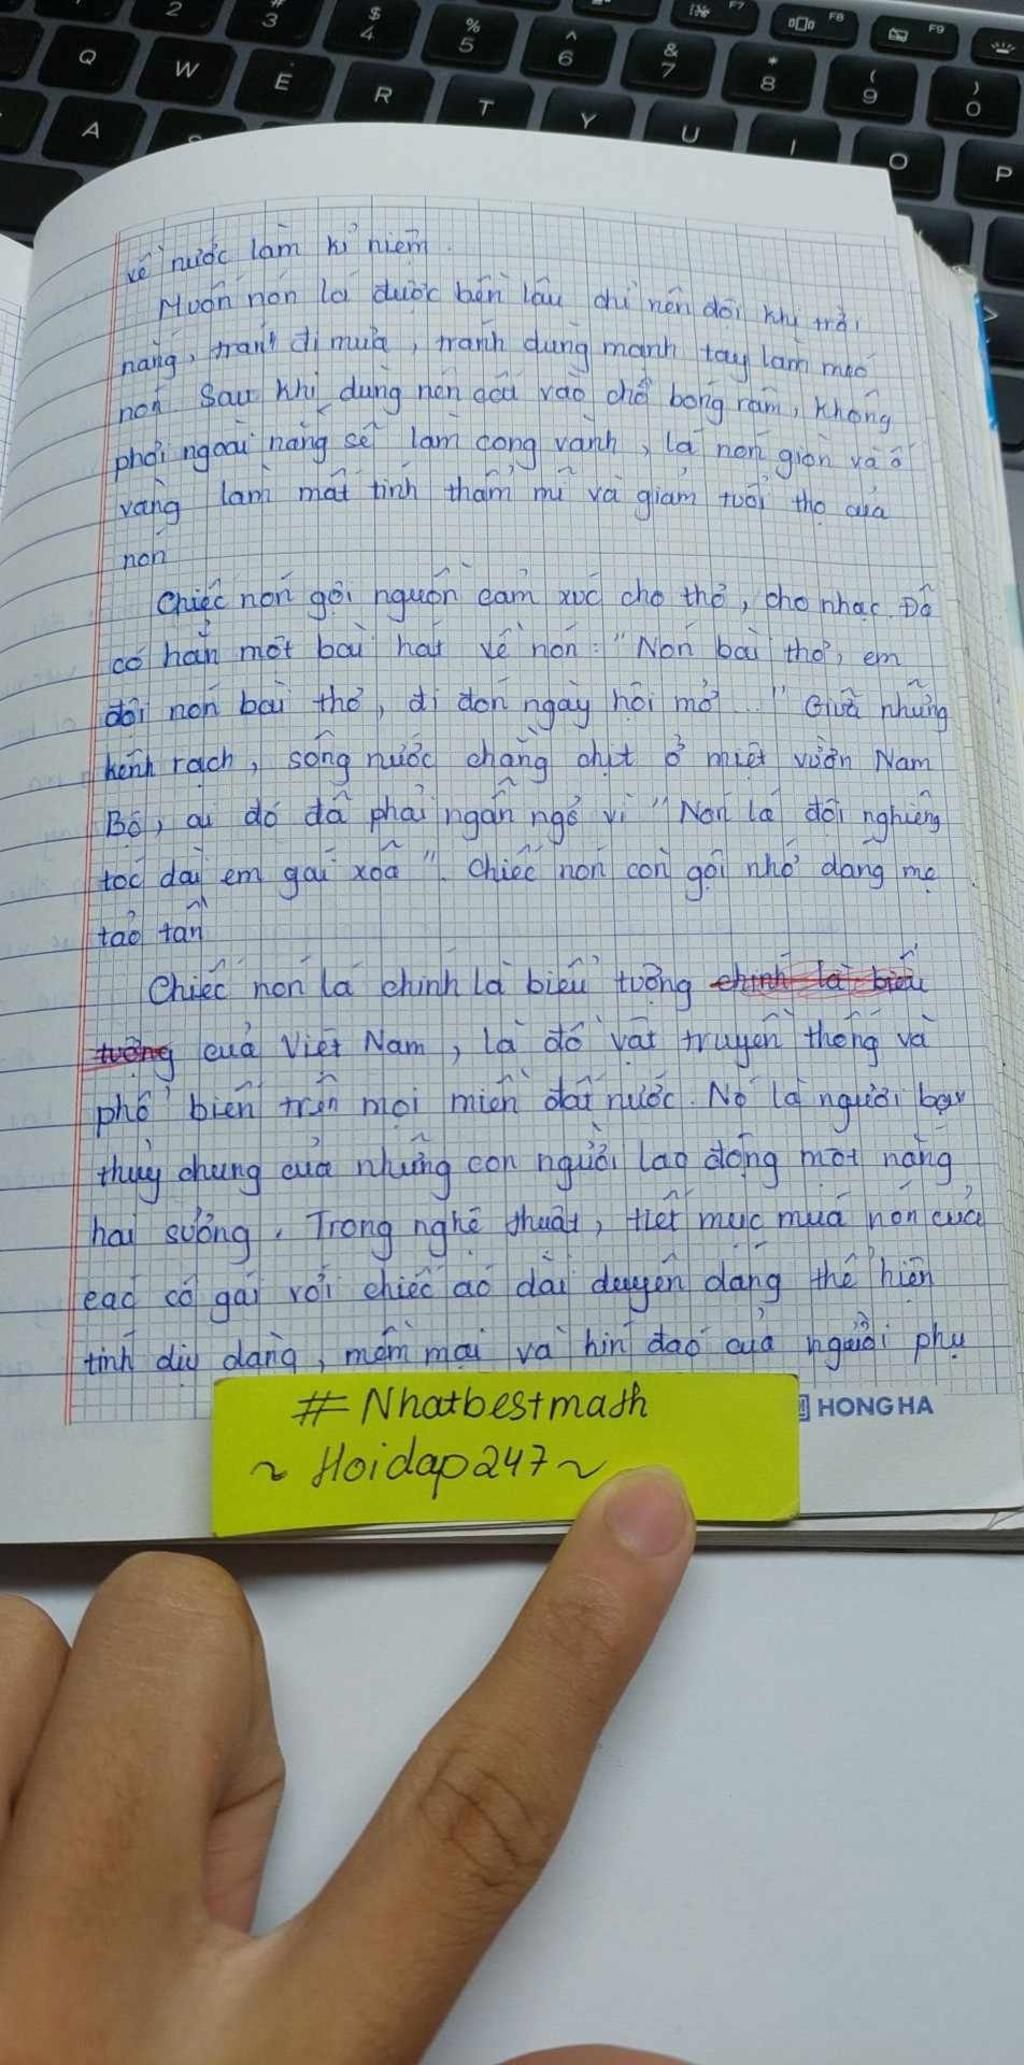 2 # 3 $ 4 % 5 ^ 6 & 7 F7 * 8 F8 ( 9 F9 ) 0
Q W E R T Y U I O P
A
về nước làm kỉ niệm.
Muốn nón lá được bền lâu chỉ nên đội khi trời
nắng, tránh đi mưa, tránh dùng mạnh tay làm méo
nón. Sau khi dùng nên cất vào chỗ bóng râm, không
phơi ngoài nắng sẽ làm cong vành, lá nón giòn và ố
vàng làm mất tính thẩm mĩ và giảm tuổi thọ của
nón
Chiếc nón gợi nguồn cảm xúc cho thơ, cho nhạc. Đã
có hẳn một bài hát về nón: "Nón bài thơ, em
đội nón bài thơ, đi đón ngày hội mở..." Giữa những
kênh rạch, sông nước chằng chịt ở miệt vườn Nam
Bộ, ai đó đã phải ngẩn ngơ vì "Nón lá đội nghiêng
tóc dài em gái xoã". Chiếc nón còn gợi nhớ dáng mẹ
tảo tần
Chiếc nón lá chính là biểu tượng chính là biểu
tượng của Việt Nam, là đồ vật truyền thống và
phổ biến trên mọi miền đất nước. Nó là người bạn
thủy chung của những con người lao động một nắng
hai sương. Trong nghệ thuật, tiết mục múa nón của
các cô gái với chiếc áo dài duyên dáng thể hiện
tính dịu dàng, mềm mại và kín đáo của người phụ
#Nhatbestmath
~ Hoidap247 ~
HONG HA